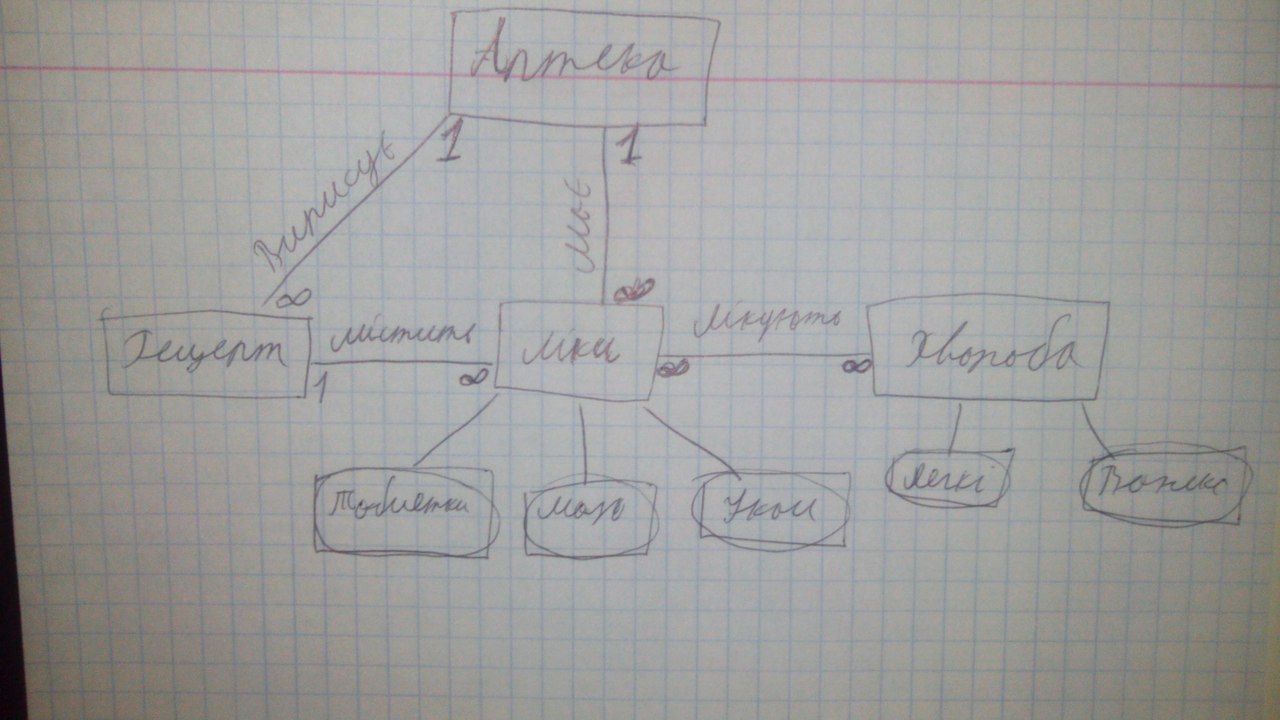 Аптека
1
1
Виписує
Має
∞
∞
Рецерт
містить
ліки
лікують
Хвороба
1
∞
∞
∞
Таблетки
Мазь
Укол
Легкі
Важкі